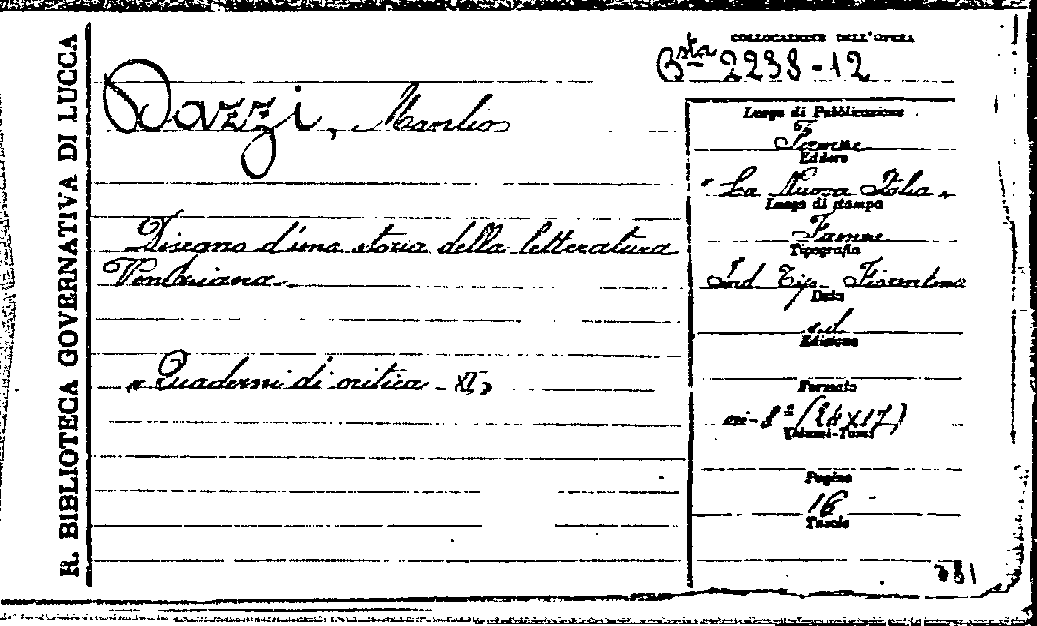 R. BIBLIOTECA GOVERNATIVA DI LUCCA
COLLOCAZIONE DELL'OPERA
Bsta 2238-12
Dazzi, Manlio
Disegno d'una storia della letteratura
« Quaderni di critica - XI »
Luogo di Pubblicazione
Firenze
Editore
"La Nuova Italia"
Luogo di stampa
Firenze
Tipografia
Ind. Tip. Fiorentina
Data
s.d.
Edizione
Formato
in-8º (24x17)
Volumi-Tomi
Pagine
16
Tavole